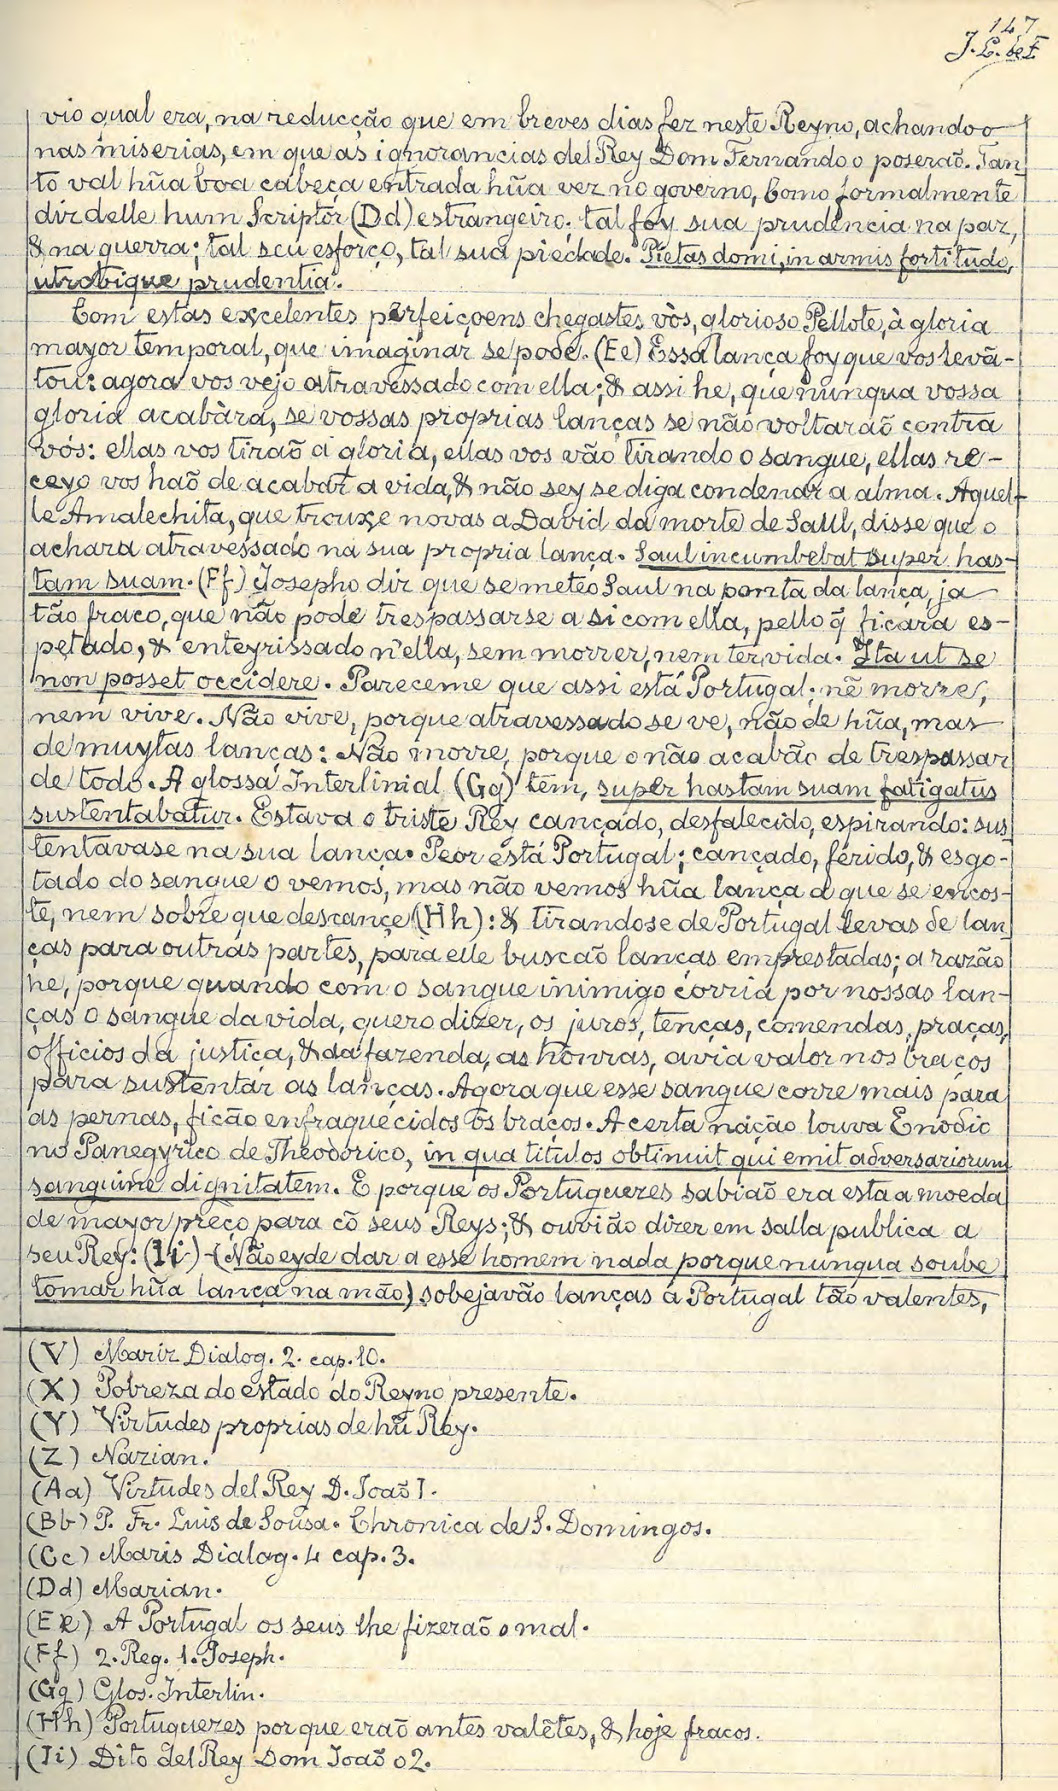 147
vio qual era, na reducção que em breves dias fez neste Reyno, achandoo
nas miserias, em que as ignorancias del Rey Dom Fernando o poserão. Tan
to val hũa boa cabeça entrada hũa vez no governo, Como formalmente
diz delle hum Scriptor (Dd) estrangeiro; tal foy sua prudencia na paz,
& na guerra; tal seu esforço, tal sua piedade. Pietas domi, in armis fortitudo,
utrobique prudentia.
Com estas excelentes perfeiçoens chegastes vòs, glorioso Pellote, à gloria
mayor temporal, que imaginar se pode. (Ee) Essa lança foy que vos levã-
tou: agora vos vejo atravessado com ella; & assi he, que nunqua vossa
gloria acabàra, se vossas proprias lanças se não voltarão contra
vós: ellas vos tiraõ a gloria, ellas vos vão tirando o sangue, ellas re-
ceyo vos haõ de acabar a vida, & não sey se diga condenar a alma. Aquel-
le Amalechita, que trouxe novas a David da morte de Saul, disse que o
achara atravessado na sua propria lança. Saul incumbebat super has-
tam suam. (Ff) Josepho diz que se meteo Saul na ponta da lança ja
tão fraco, que não pode trespassarse a si com ella, pello q̃ ficara es-
petado, & enteyrissado n'ella, sem morrer, nem ter vida. Ita ut se
non posset occidere. Pareceme que assi está Portugal; nẽ morre,
nem vive. Não vive, porque atravessado se ve, não de hũa, mas
de muytas lanças: Não morre, porque o não acabão de trespassar
de todo. A glossa Interlinial (Gg) tem, super hastam suam fatigatus
sustentabatur. Estava o triste Rey cançado, desfalecido, espirando: sus
tentavase na sua lança. Peor está Portugal; cançado, ferido, & esgo-
tado do sangue o vemos, mas não vemos hũa lança a que se encos-
te, nem sobre que descançe (Hh): & tirandose de Portugal levas de lan
ças para outras partes, para elle buscão lanças emprestadas; a razão
he, porque quando com o sangue inimigo corria por nossas lan-
ças o sangue da vida, quero dizer, os juros, tenças, comendas, praças,
officios da justiça, & da fazenda, as honras, avia valor nos braços
para sustentar as lanças. Agora que esse sangue corre mais para
as pernas, ficão enfraquecidos os braços. A certa nação louva Enodio
no Panegyrico de Theodorico, in qua titulos obtinuit qui emit adversariorum
sanguine dignitatem. E porque os Portuguezes sabião era esta a moeda
de mayor preço para cõ seus Reys; & ouvião dizer em salla publica a
seu Rey: (Ii) (Não eyde dar a esse homem nada porque nunqua soube
tomar hũa lança na mão) sobejavão lanças a Portugal tão valentes,
(V) Mariz Dialog. 2. cap. 10.
(X) Pobreza do estado do Reyno presente.
(Y) Virtudes proprias de hũ Rey.
(Z) Nazian.
(Aa) Virtudes del Rey D. Joaõ I.
(Bb) P. Fr. Luis de Sousa. Chronica de S. Domingos.
(Cc) Maris Dialog. 4 cap. 3.
(Dd) Marian.
(Ee) A Portugal os seus lhe fizeraõ o mal.
(Ff) 2. Reg. 1. Joseph.
(Gg) Glos. Interlin.
(Hh) Portuguezes por que eraõ antes valẽtes, & hoje fracos.
(Ii) Dito del Rey Dom Joaõ o 2.